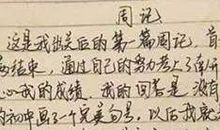 周记
这是我出关后的第一篇周记,首
结束,通过自己的努力考上了
心我的成绩,我的回答是没有
初中画了一个完美句号,以后我